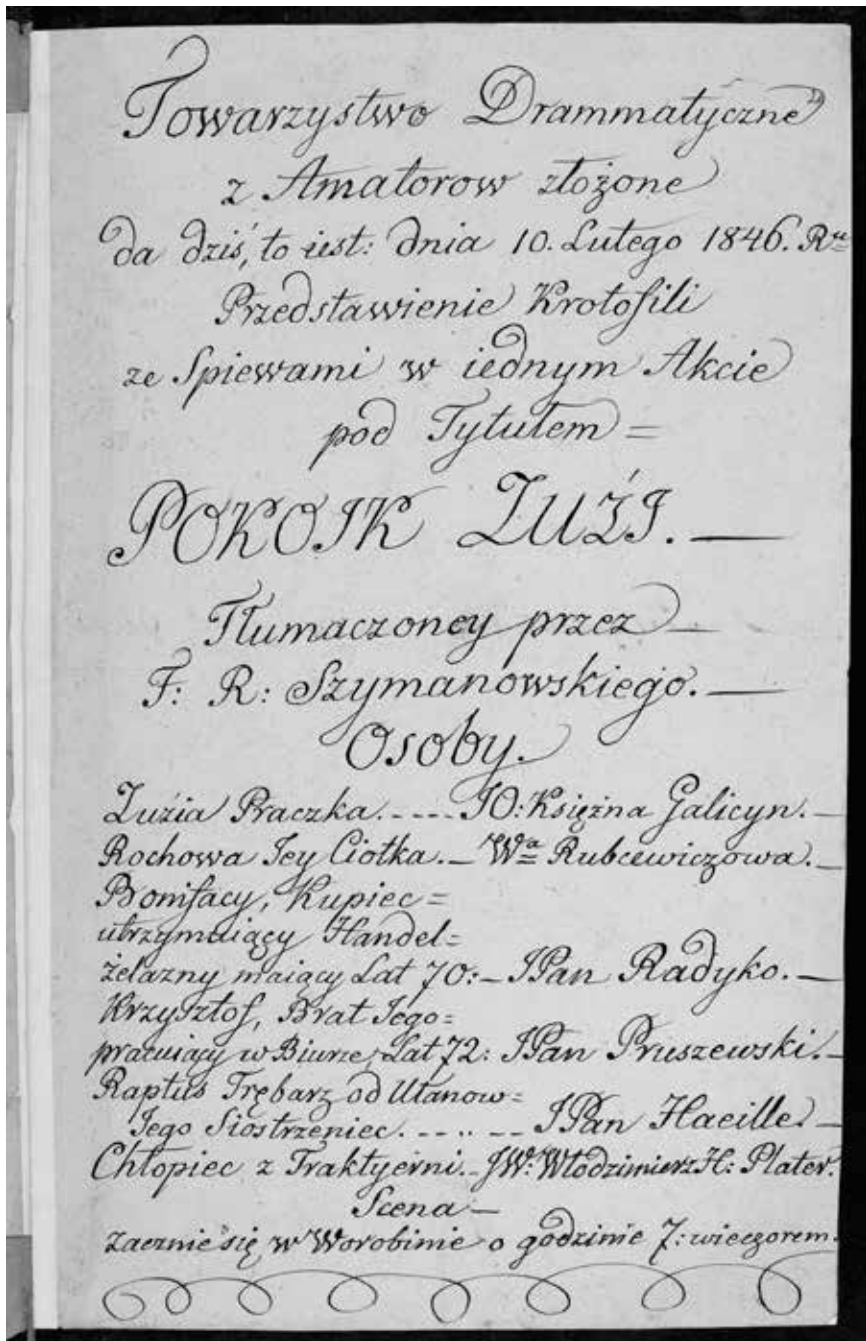 Towarzystwo Drammatyczne
z Amatorow złożone
da dziś, to iest: dnia 10. Lutego 1846. Ru
Przedstawienie Krotofili
ze Spiewami w iednym Akcie
pod Tytułem =
POKOIK ZUŹI. —
Tłumaczoney przez —
F: R: Szymanowskiego. —
Osoby.
Zuźia Praczka. - - - - - JO: Księżna Galicyn. —
Rochowa Jey Ciotka. — Wa Rubcewiczowa. —
Bonifacy, Kupiec =
utrzymuiący Handel =
żelazny maiący Lat 70: — JPan Radyko. —
Krzysztof, Brat Jego =
pracuiący w Biurze, Lat 72: JPan Pruszewski. —
Raptus Trębarz od Ułanow =
Jego Siostrzeniec. - - - - - - JPan Haeille. —
Chłopiec z Traktyerni. - JW: Włodzimierz H: Plater.
Scena —
zacznie się w Worobinie o godzinie 7: wieczorem.